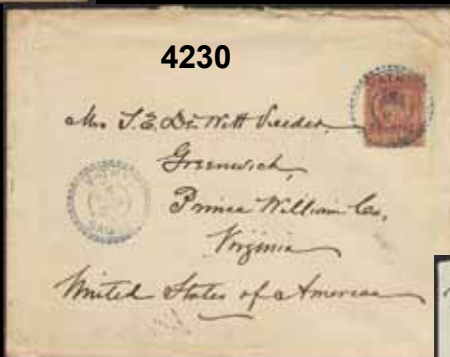 4230
Mrs T. E. De Witt Veeder,
Greenwich,
Prince William Co,
Virginia
United States of America